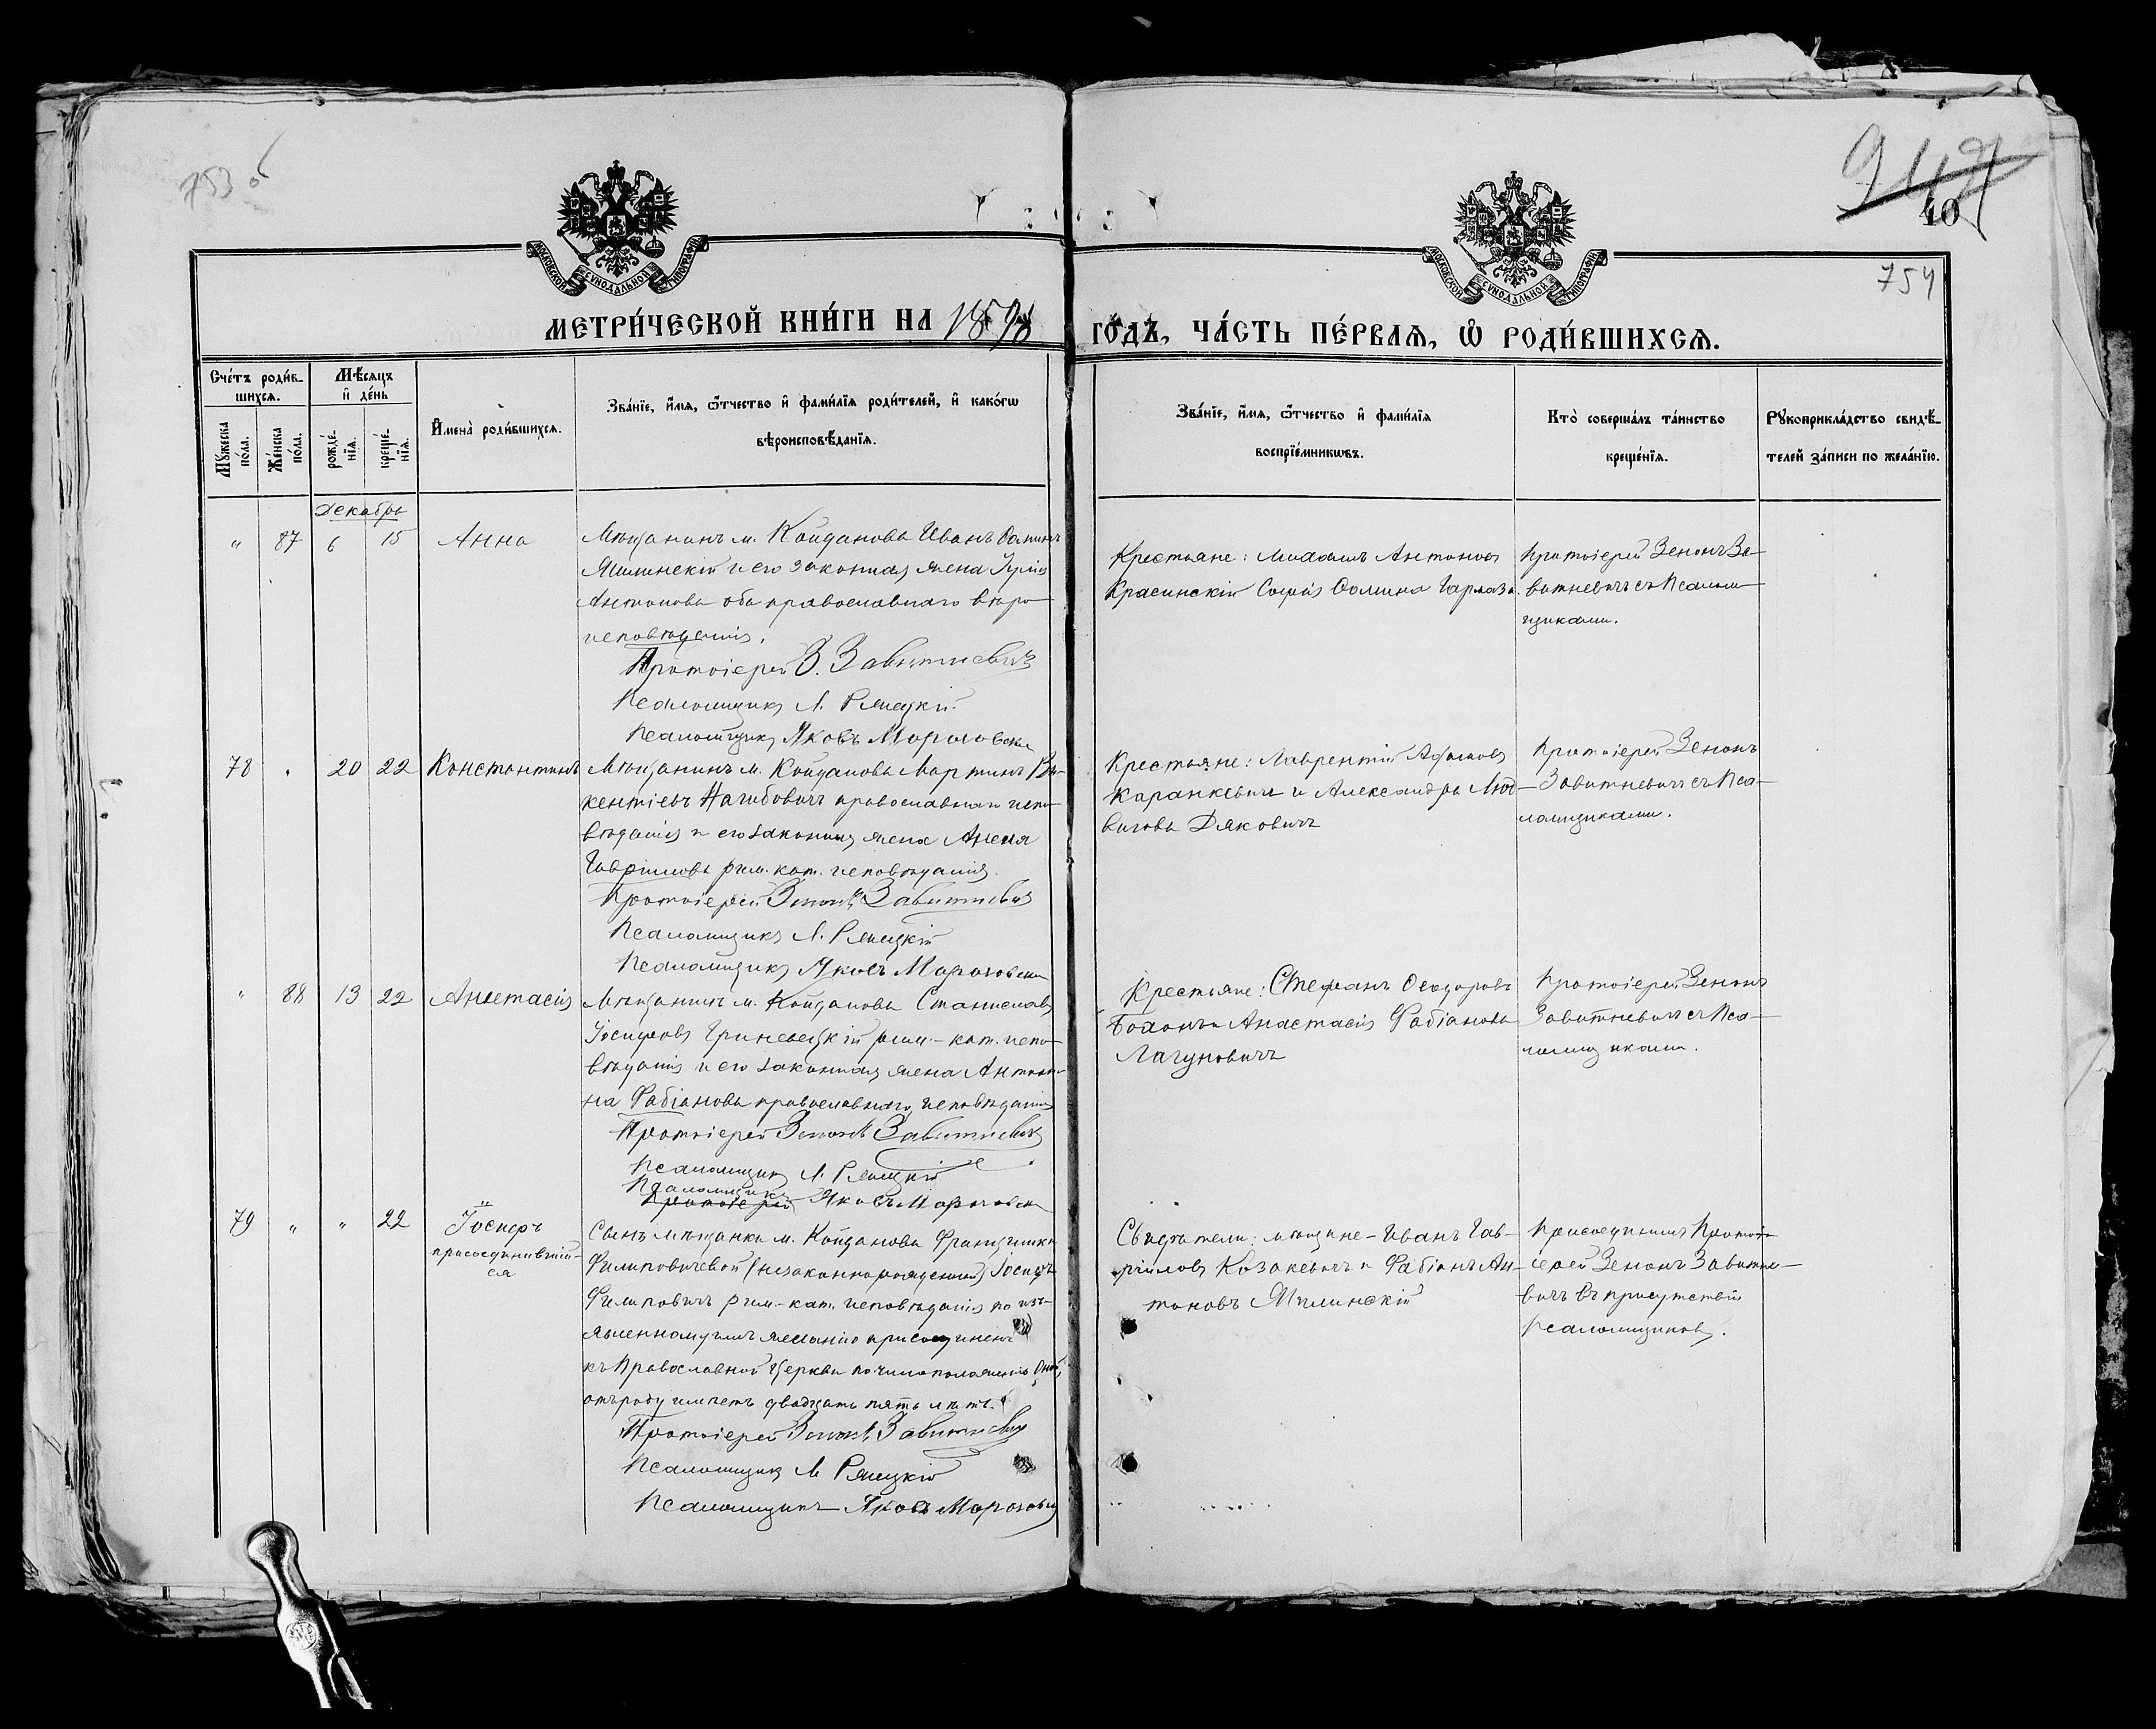 753 об
947
40
754
МОСКОВСКОЙ СѴНОДАЛЬНОЙ ТИПОГРАФІИ
МОСКОВСКОЙ СѴНОДАЛЬНОЙ ТИПОГРАФІИ
МЕТРИ́ЧЕСКОЙ КНИ́ГИ НА 1898 ГО́ДЪ, ЧА́СТЬ ПЕ́РВАѦ, Ѡ҆ РОДИ́ВШИХСѦ.
Сче́тъ роди́в-
шихсѧ.
Мꙋ́жеска по́ла.
Же́нска по́ла.
Мѣ́сѧцъ
и҆ де́нь
рожде́-
нїѧ.
креще́-
нїѧ.
И҆мена̀ роди́вшихсѧ.
Зва́нїе, и҆́мѧ, ѻ҆́тчество и҆ фами́лїѧ роди́телей, и҆ како́гѡ
вѣроисповѣ́данїѧ.
Зва́нїе, и҆́мѧ, ѻ҆́тчество и҆ фами́лїѧ
воспрїе́мникѡвъ.
Кто̀ соверша́лъ та́инство
креще́нїѧ.
Рꙋкоприкла́дство свидѣ́-
телей за́писи по жела́нїю.
Декабрь
" 87 6 15 Анна
Мѣщанинъ м. Койданова Иванъ
и его законная жена
Антонова оба православнаго вѣро-
исповѣданія.
Протоіерей З. Завитневичъ
Псаломщикъ Л. Ряецкій
Псаломщикъ Яковъ Морозовскій
Крестьяне: Михаилъ Антоновъ
Красинскій Софія Фомина
Протоіерей Зенонъ За-
витневичъ съ Псалом-
щиками.
78 " 20 22 Константинъ
Мѣщанинъ м. Койданова Мартинъ Ви-
кентіевъ Нагибовичъ православнаго испо-
вѣданія и его законная жена
Гавріилова рим. кат. исповѣданія.
Протоіерей Зенонъ Завитневичъ
Псаломщикъ Л. Ряецкій
Псаломщикъ Яковъ Морозовскій
Крестьяне: Лаврентій
Каранкевичъ и Александра Люд-
вигова Дяковичъ
Протоіерей Зенонъ
Завитневичъ съ Пса-
ломщиками.
" 88 13 22 Анастасія
Мѣщанинъ м. Койданова Станиславъ
Іосифовъ Гриневецкій рим.-кат. испо-
вѣданія и его законная жена Антони-
на Фабіанова православнаго исповѣданія
Протоіерей Зенонъ Завитневичъ
Псаломщикъ Л. Ряецкій
Псаломщикъ
Протоіерей Яковъ Морозовскій
Крестьяне: Стефанъ Ѳеодоровъ
Анастасія Фабіанова
Лагуновичъ
Протоіерей Зенонъ
Завитневичъ съ Пса-
ломщиками.
79 " " 22 Іосифъ
присоединившій-
ся
Сынъ мѣщанки м. Койданова Францишки
Филиповичевой (незаконнорожденный) Іосифъ
Филиповичъ рим.-кат. исповѣданія по изъ-
явленному имъ желанію присоединенъ
къ Православной Церкви по чиноположенію Оной,
отъ роду имѣетъ двадцать пять лѣтъ.
Протоіерей Зенонъ Завитневичъ
Псаломщикъ Л. Ряецкій
Псаломщикъ Яковъ Морозовскій
Свидѣтели: мѣщане - Иванъ Гав-
ріиловъ Козакевичъ и Фабіанъ Ан-
тоновъ
Присоединилъ Протоі-
ерей Зенонъ Завитне-
вичъ въ присутствіи
псаломщиковъ.